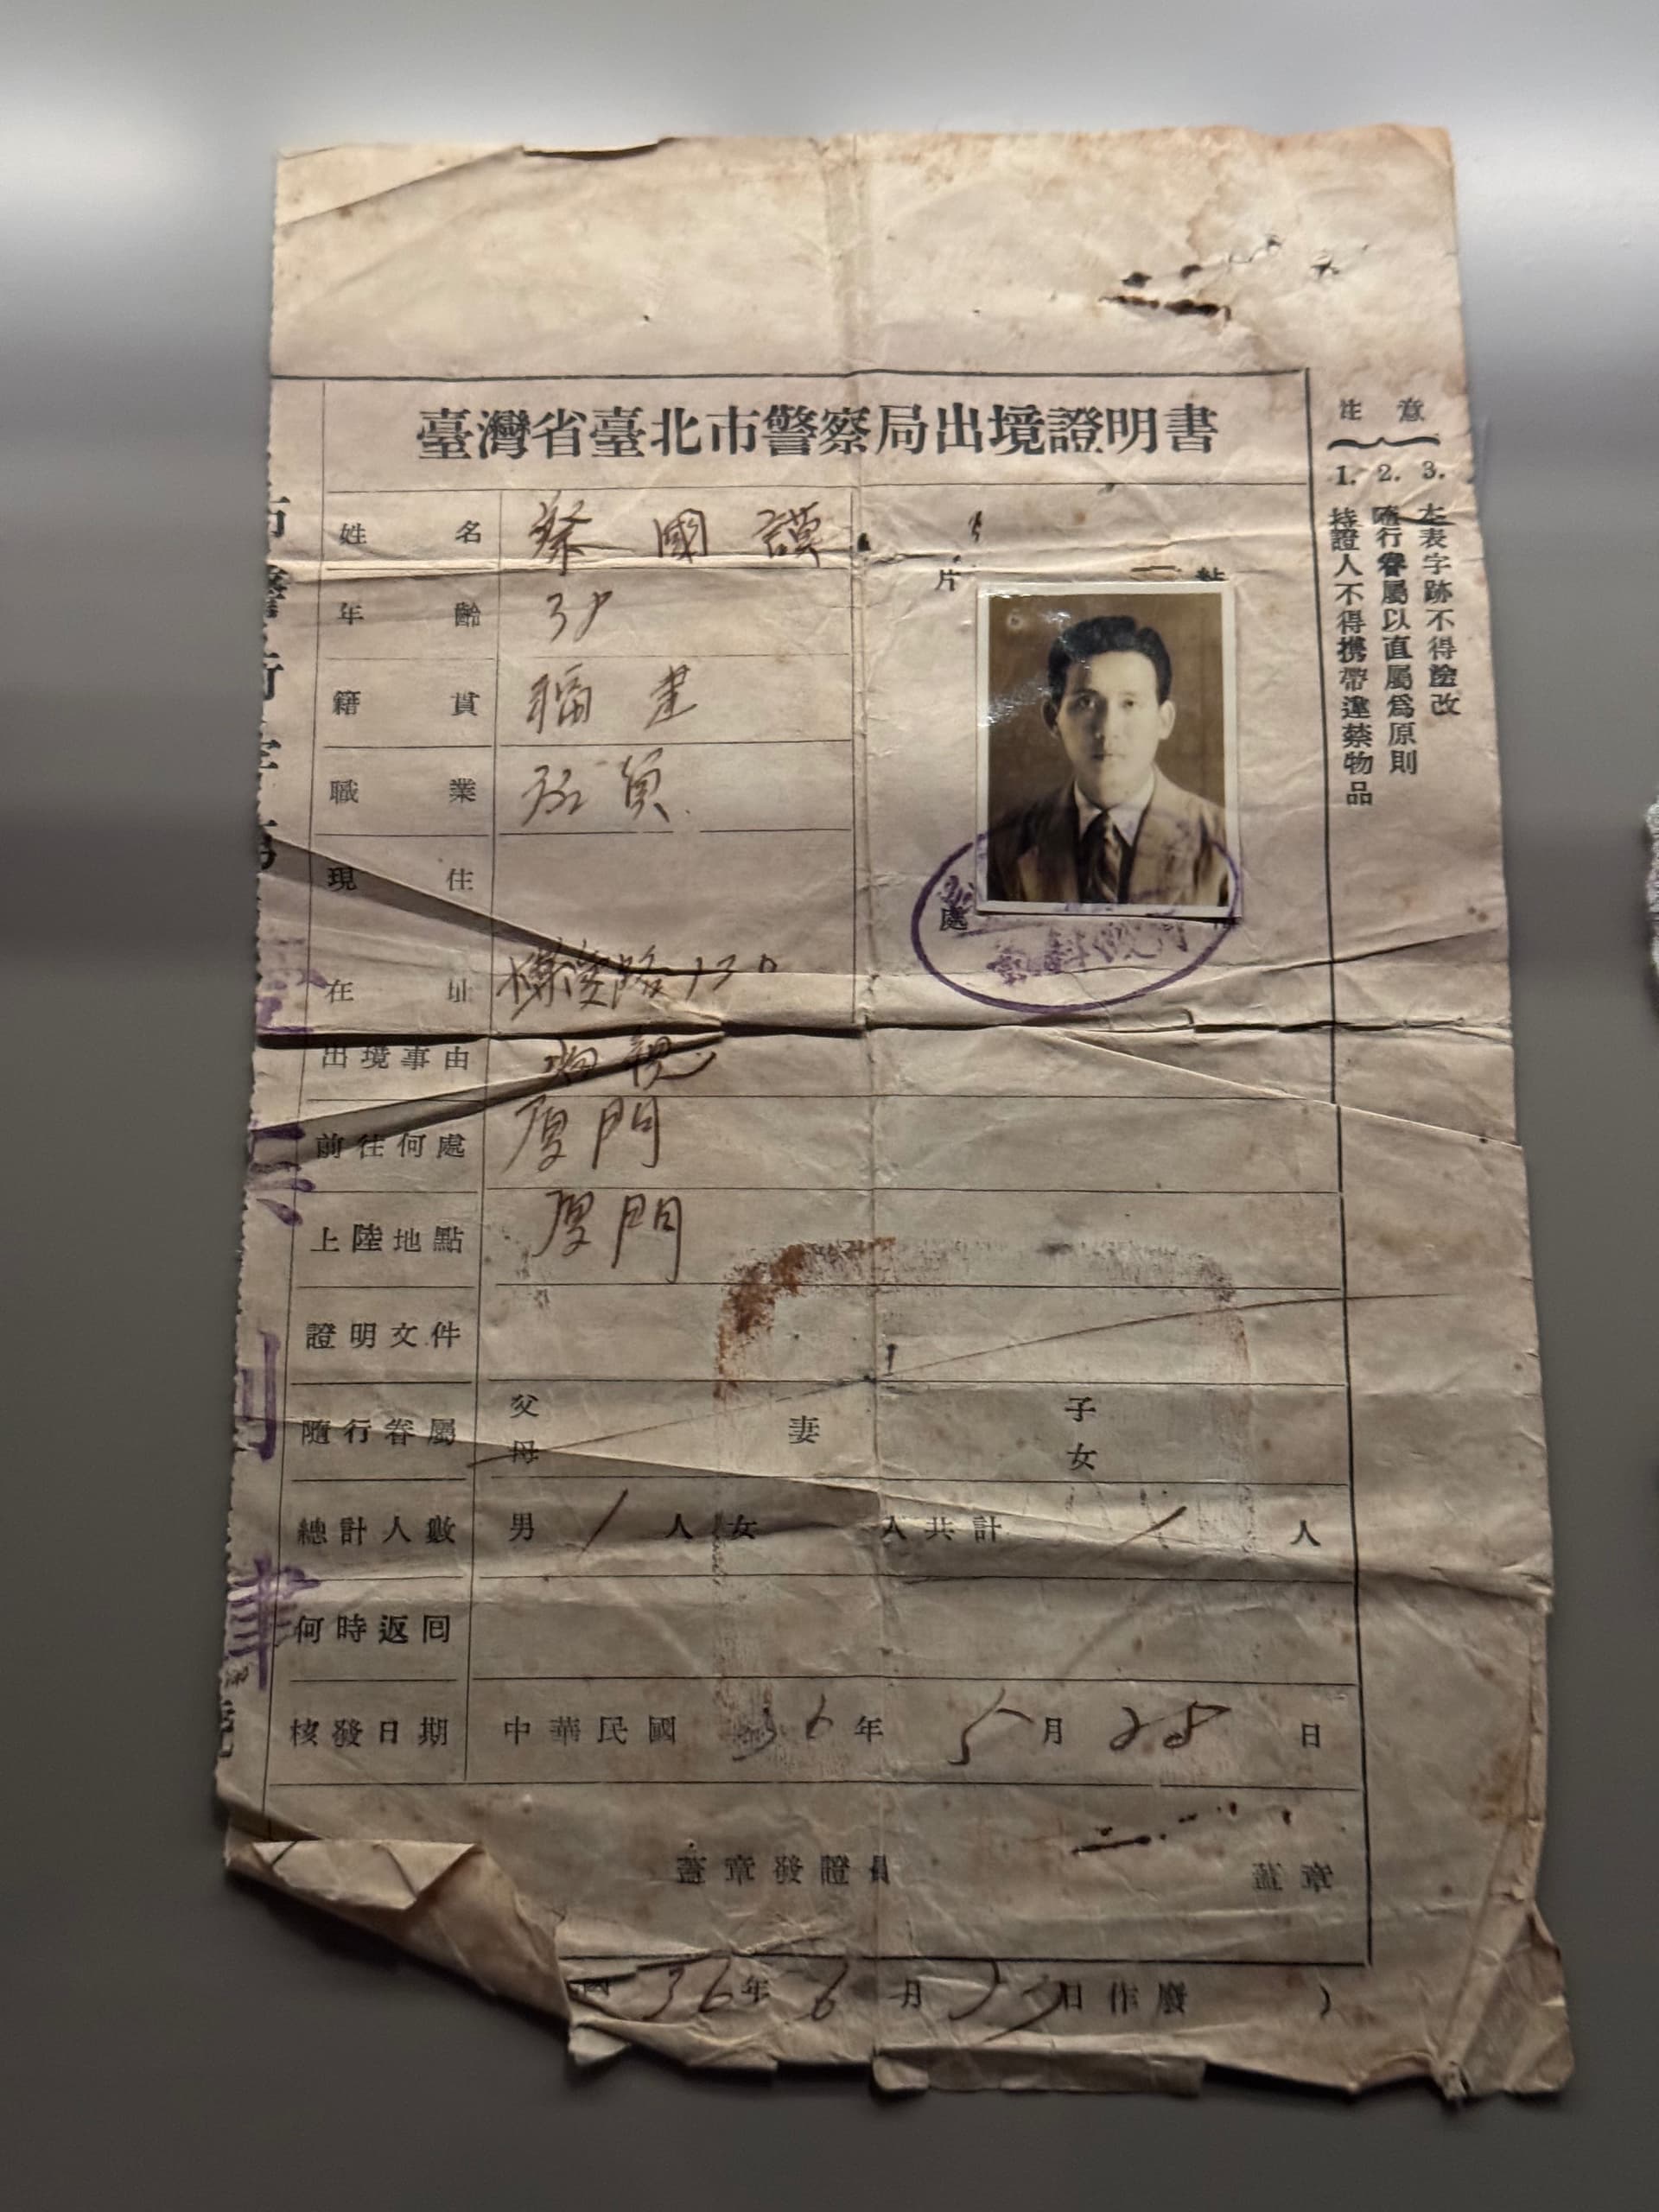 臺灣省臺北市警察局出境證明書
注意
1. 持證人不得攜帶違禁物品
2. 隨行眷屬以直屬爲原則
3. 左表字跡不得塗改
姓名 蔡國謨
片 粘
年齡 38
籍貫 福建
職業
處
現住
在址 路130
出境事由
前往何處 厦門
上陸地點 厦門
證明文件
隨行眷屬 父母 妻 子女
總計人數 男1人女 人共計1人
何時返囘
核發日期 中華民國36年5月28日
蓋章發證員 蓋章
國36年6月 日作廢)